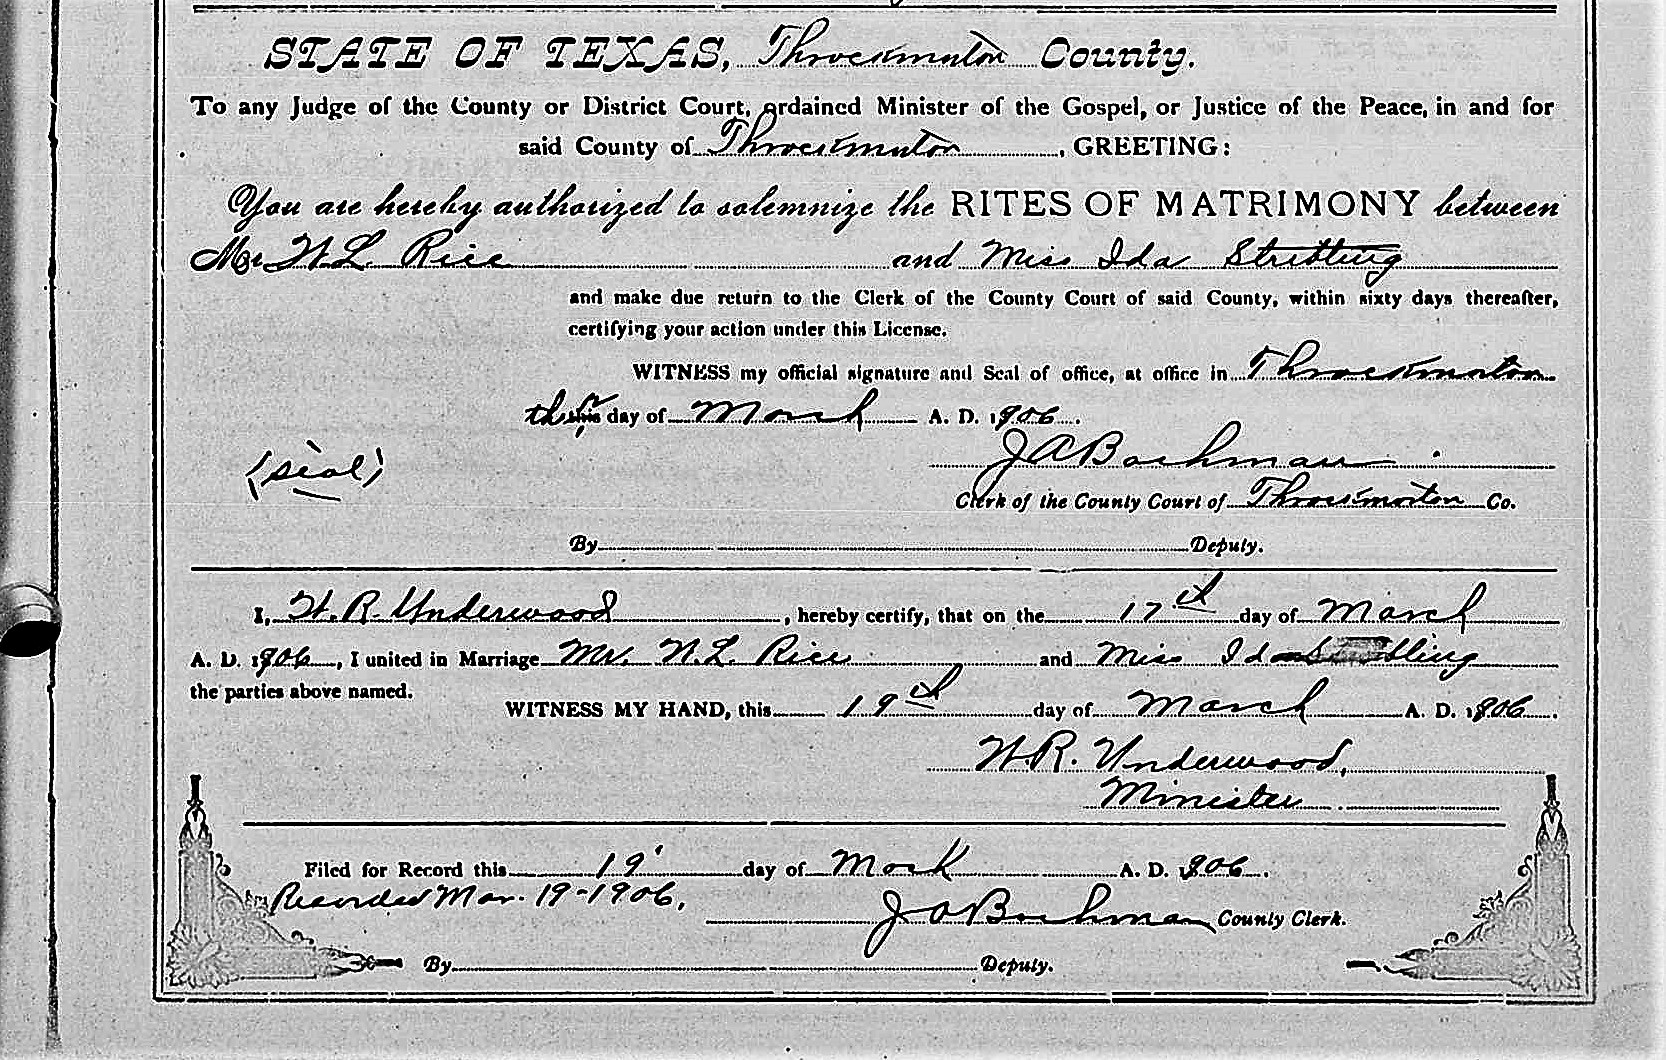 STATE OF TEXAS, Throckmorton County.
To any Judge of the County or District Court, ordained Minister of the Gospel, or Justice of the Peace, in and for
said County of Throckmorton, GREETING:
You are hereby authorized to solemnize the RITES OF MATRIMONY between
Mr W.L. Rice and Miss Ida Stribling
and make due return to the Clerk of the County Court of said County, within sixty days thereafter,
certifying your action under this License.
WITNESS my official signature and Seal of office, at office in Throckmorton
day of March A. D. 1906.
(seal)
J A Bachman
Clerk of the County Court of Throckmorton Co.
By Deputy.
I, W. R. Underwood, hereby certify, that on the 17th day of March
A. D. 1906, I united in Marriage Mr. W.L. Rice and Miss Ida Stribling
the parties above named.
WITNESS MY HAND, this 19th day of March A. D. 1906.
W.R. Underwood,
Minister
Filed for Record this 19 day of March A. D. 1906.
Recorded Mar. 19-1906.
J A Bachman County Clerk.
By Deputy.